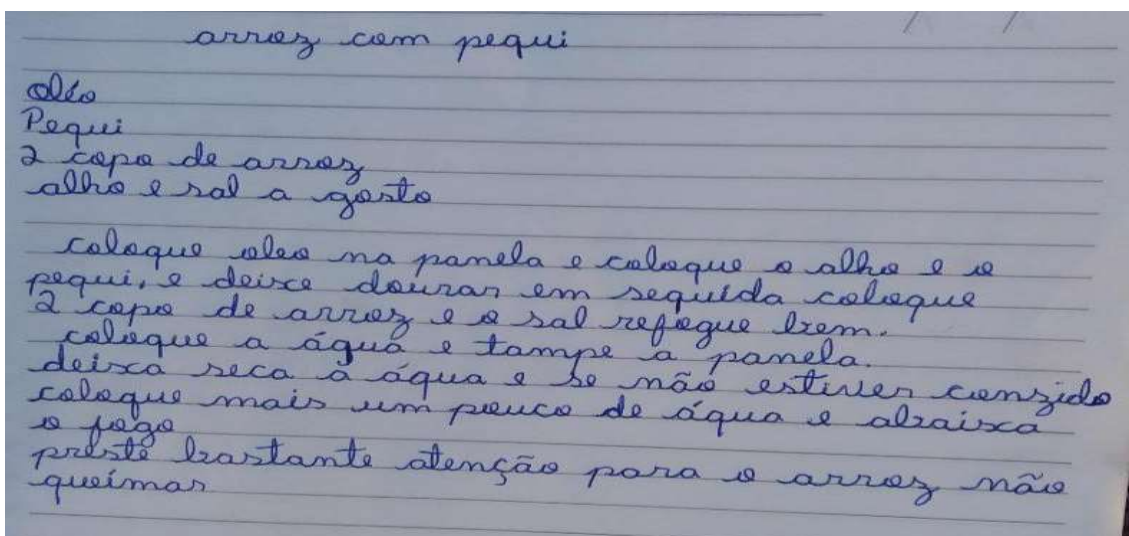 arroz com pequi
oléo
Pequi
2 copo de arroz
alho e sal a gosto
coloque oleo na panela e coloque o alho e o
pequi, e deixe dourar em seguida coloque
2 copo de arroz e o sal refogue bem.
coloque a água e tampe a panela.
deixa seca a água e se não estiver conzido
coloque mais um pouco de água e abaixa
o fogo
preste bastante atenção para o arroz não
queimar